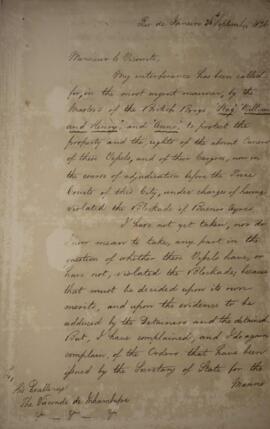 Rio de Janeiro 26 September 1826
Monsieur le Vicomte,
My interference has been called
for, in the most urgent manner, by the
Masters of the British Brigs, "
and Henry", and "Anne", to protect the
property and the rights of the
of their Vessels, and of their Cargoes, now in
the course of adjudication before the Prize
Courts of this City, under charges of having
violated the Blockade of Buenos Ayres.
I have not yet taken, nor do
I now mean to take, any part in the
question of whether these Vessels have, or
have not, violated the Blockade; because
that must be decided upon its own
merits, and upon the evidence to be
adduced by the Detainers and the detained.
But, I have complained, and I do again
complain, of the Orders that have been
issued by the Secretary of State for the
Marine
His Excellency
The Visconde de Inhambupe